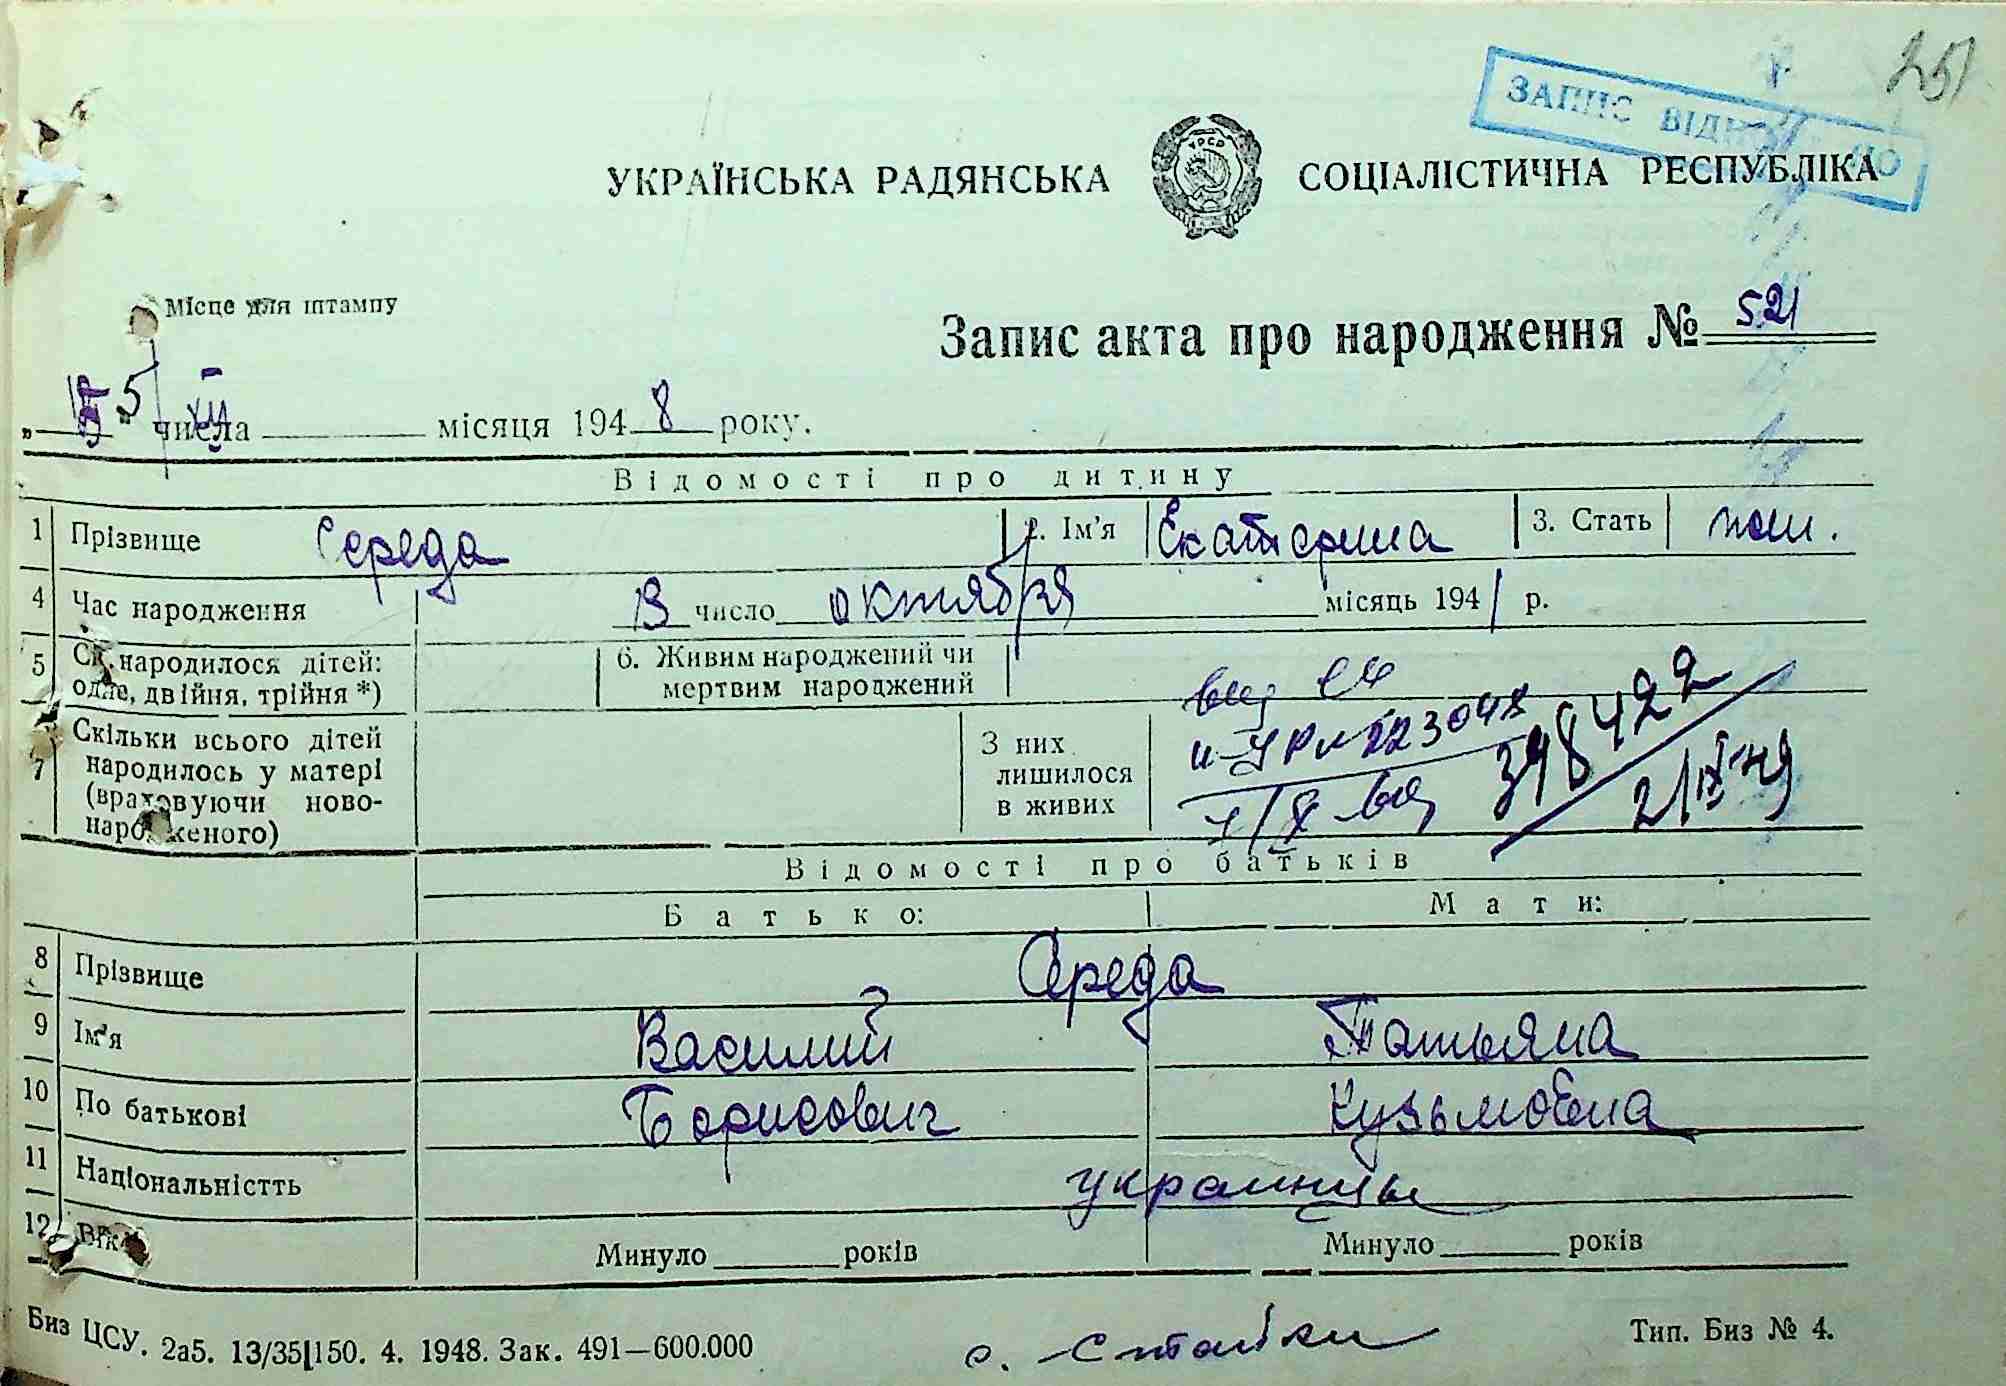 251
ЗАПИС ВІДН ЛЕНО
УКРАЇНСЬКА РАДЯНСЬКА СОЦІАЛІСТИЧНА РЕСПУБЛІКА
УРСР
Місце для штампу
Запис акта про народження № 521
„ 5 " числа XII місяця 1948 року.
Відомості про дитину
1 Прізвище Середа 2. Ім'я Екатерина 3. Стать жен.
4 Час народження 13 число октября місяць 1941 р.
5 Ск. народилося дітей: одне, двійня, трійня *) 6. Живим народжений чи мертвим народжений
7 Скільки всього дітей народилось у матері (враховуючи ново-народженого) З них лишилося в живих
398422
21/IX-49
Відомості про батьків
Батько: Мати:
8 Прізвище Середа
9 Ім'я Василий Татьяна
10 По батькові Борисович Кузьмовна
11 Національністть украинцы
12 Вік Минуло року Минуло років
Биз ЦСУ. 2а5. 13/35|150. 4. 1948. Зак. 491—600.000 с. Стайки Тип. Биз № 4.